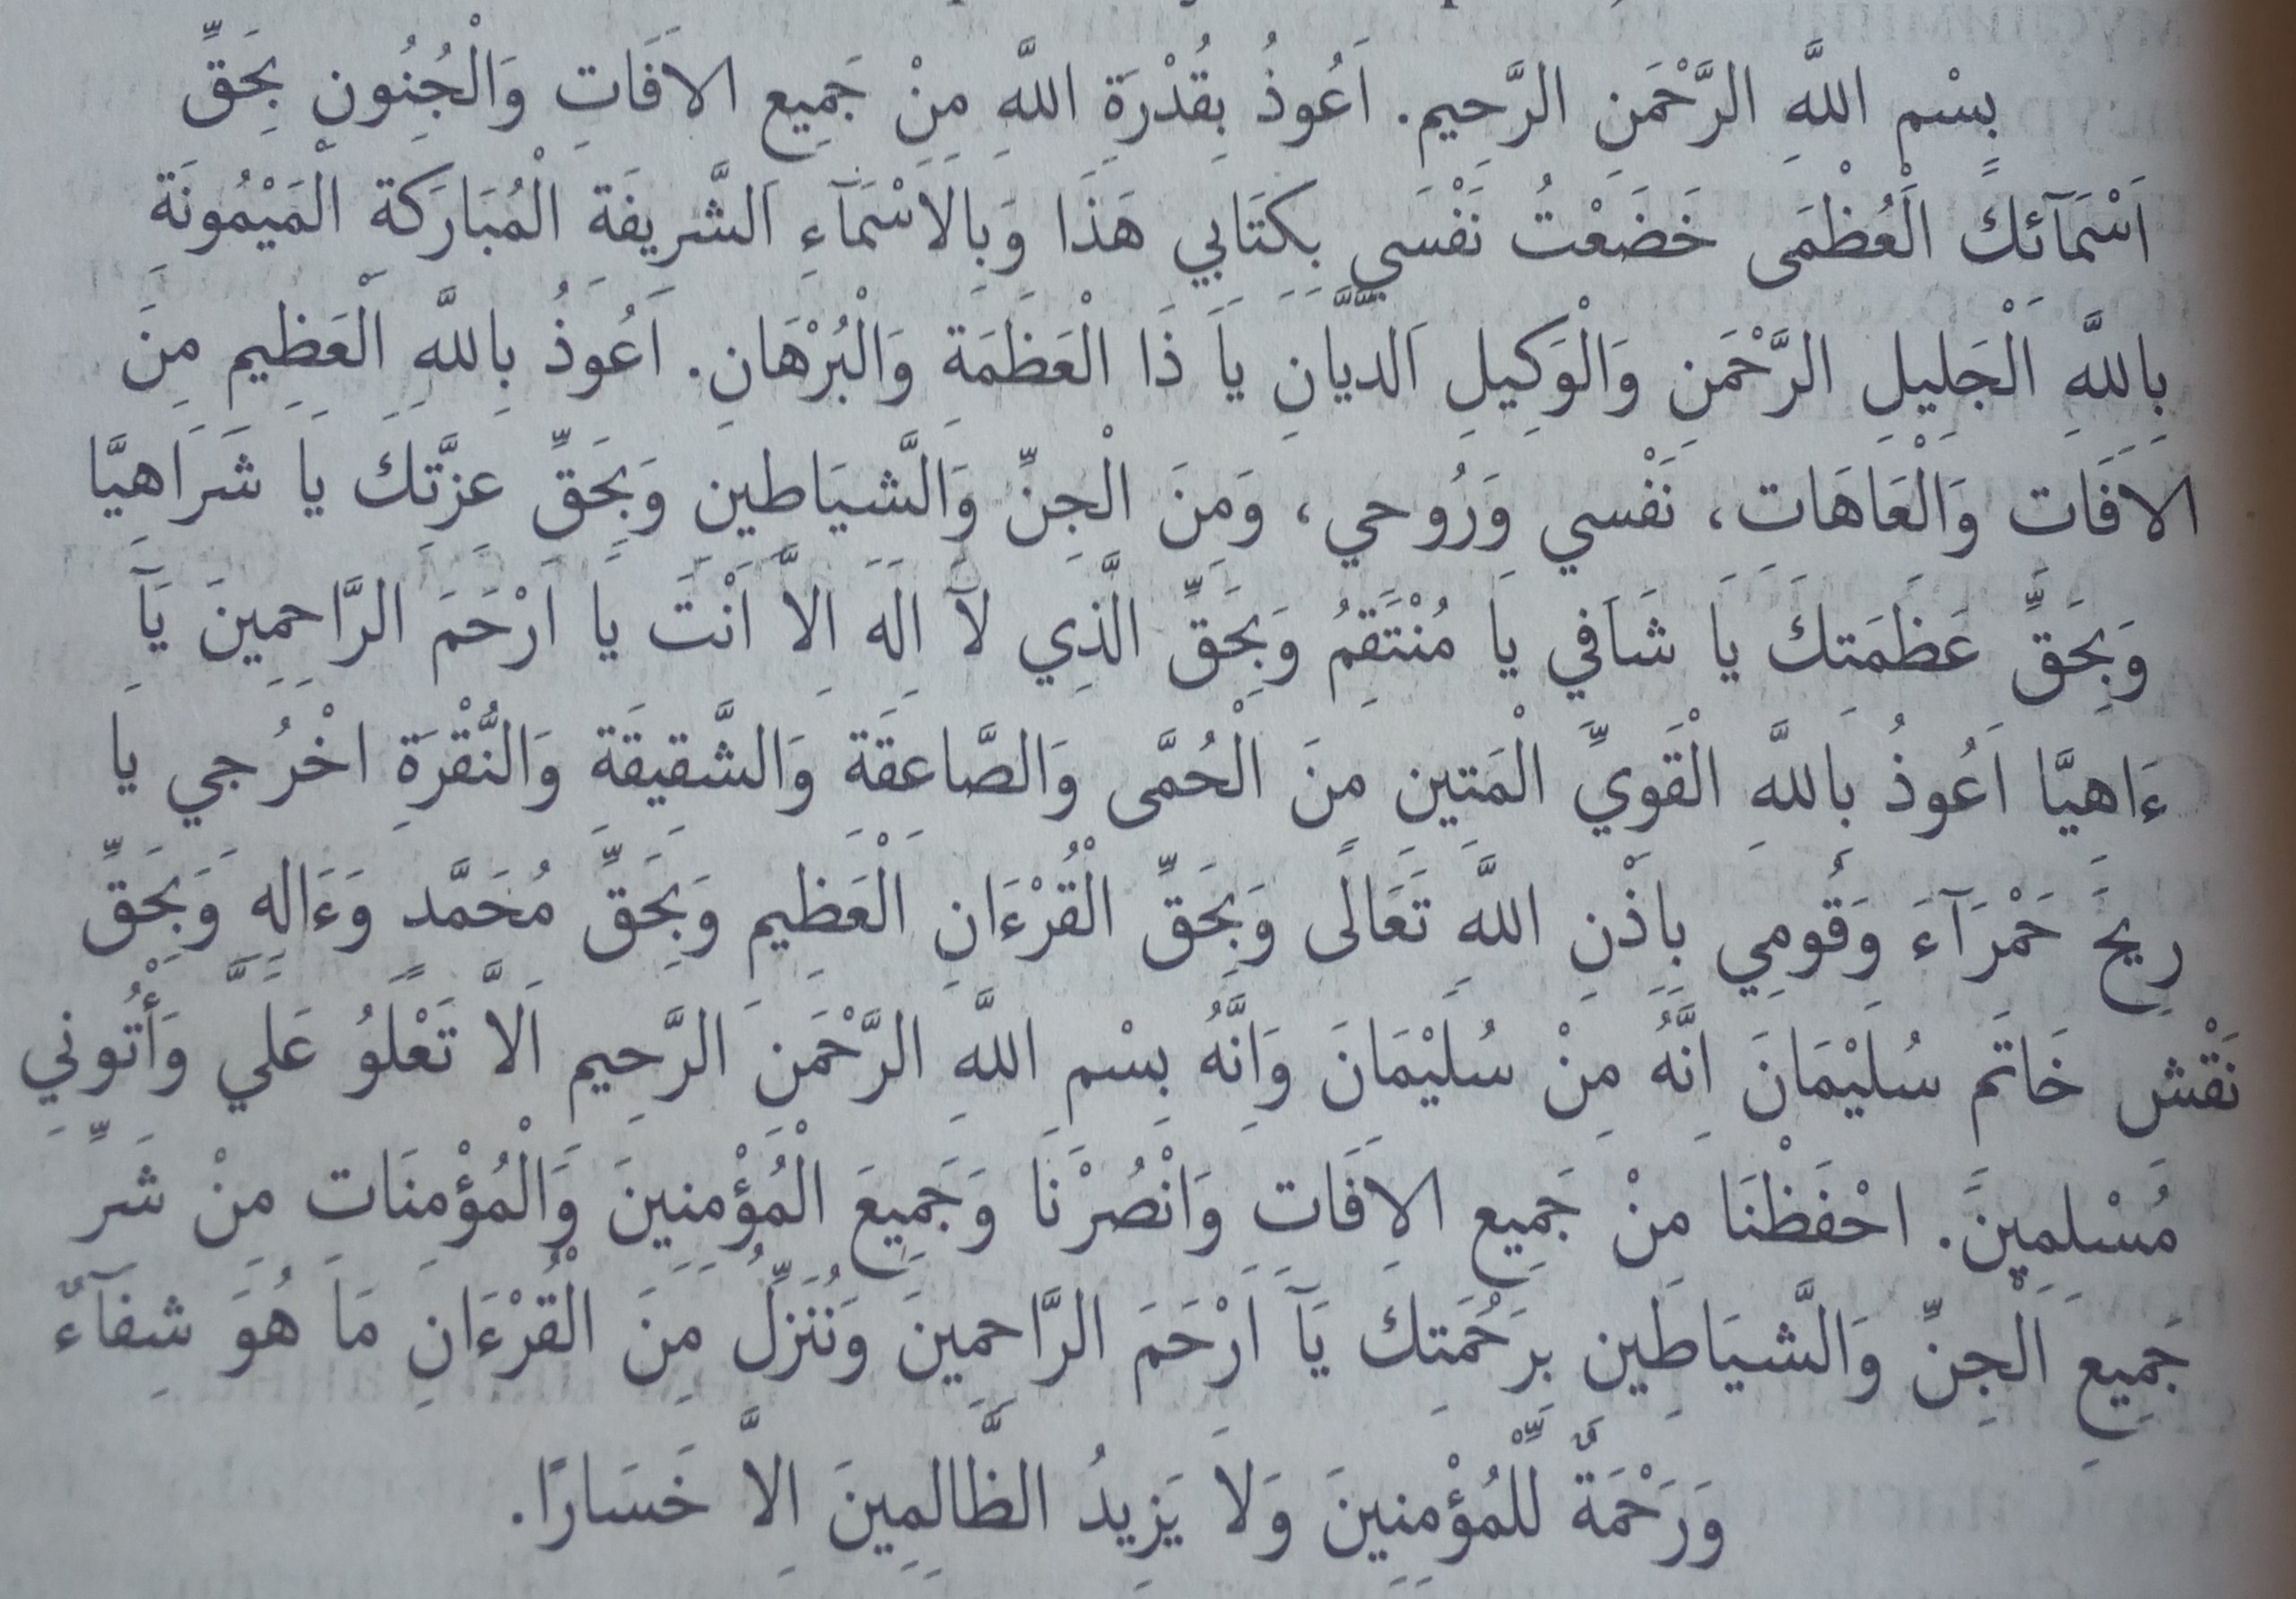 بِسْمِ اللَّهِ الرَّحْمَنِ الرَّحِيمِ. اَعُوذُ بِقُدْرَةِ اللَّهِ مِنْ جَمِيعِ الاَفَاتِ وَالْجُنُونِ بِحَقِّ
اَسْمَآئِكَ الْعُظْمَى خَضَعْتُ نَفْسَي بِكِتَابِي هَذَا وَبِالاَسْمَآءِ الشَّرِيفَةِ الْمُبَارَكَةِ الْمَيْمُونَةِ
بِاللَّهِ الْجَلِيلِ الرَّحْمَنِ وَالْوَكِيلِ الدَّيَّانِ يَا ذَا الْعَظَمَةِ وَالْبُرْهَانِ. اَعُوذُ بِاللَّهِ الْعَظِيمِ مِنَ
الاَفَاتِ وَالْعَاهَاتِ، نَفْسِي وَرُوحِي، وَمِنَ الْجِنِّ وَالشَّيَاطِينِ وَبِحَقِّ عِزَّتِكَ يَا شَرَاهِيَّا
وَبِحَقِّ عَظَمَتِكَ يَا شَافِي يَا مُنْتَقِمُ وَبِحَقِّ الَّذِي لَآ اِلَهَ اِلاَّ اَنْتَ يَا اَرْحَمَ الرَّاحِمِينَ يَآ
ءَاهِيَّا اَعُوذُ بِاللَّهِ الْقَوِيِّ الْمَتِينِ مِنَ الْحُمَّى وَالصَّاعِقَةِ وَالشَّقِيقَةِ وَالنُّقْرَةِ اخْرُجِي يَا
رِيحَ حَمْرَآءَ وَقُومِي بِاِذْنِ اللَّهِ تَعَالَى وَبِحَقِّ الْقُرْءَانِ الْعَظِيمِ وَبِحَقِّ مُحَمَّدٍ وَءَالِهِ وَبِحَقِّ
نَقْشِ خَاتَمِ سُلَيْمَانَ اِنَّهُ مِنْ سُلَيْمَانَ وَاِنَّهُ بِسْمِ اللَّهِ الرَّحْمَنِ الرَّحِيمِ اَلاَّ تَعْلَوُ عَلَيَّ وَأْتُونِي
مُسْلِمِينَ. احْفَظْنَا مِنْ جَمِيعِ الاَفَاتِ وَانْصُرْنَا وَجَمِيعَ الْمُؤْمِنِينَ وَالْمُؤْمِنَاتِ مِنْ شَرِّ
جَمِيعِ الْجِنِّ وَالشَّيَاطِينِ بِرَحْمَتِكَ يَآ اَرْحَمَ الرَّاحِمِينَ وَنُنَزِّلُ مِنَ الْقُرْءَانِ مَا هُوَ شِفَآءٌ
وَرَحْمَةٌ لِّلْمُؤْمِنِينَ وَلَا يَزِيدُ الظَّالِمِينَ اِلاَّ خَسَارًا.